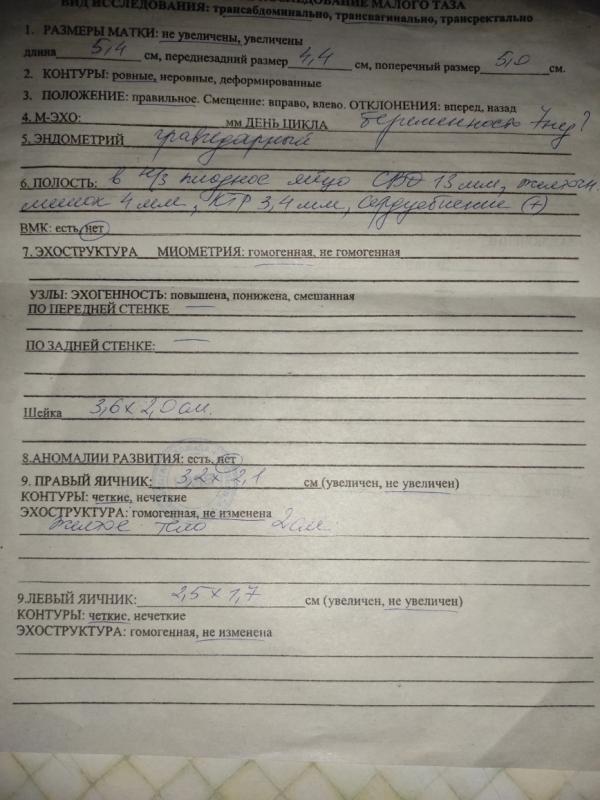 ВИД ИССЛЕДОВАНИЯ: трансабдоминально, трансвагинально, трансректально МАЛОГО ТАЗА
1. РАЗМЕРЫ МАТКИ: не увеличены, увеличены
длина 5,4 см, переднезадний размер 4,4 см, поперечный размер 5,0 см.
2. КОНТУРЫ: ровные, неровные, деформированные
3. ПОЛОЖЕНИЕ: правильное. Смещение: вправо, влево. ОТКЛОНЕНИЯ: вперед, назад
4. М-ЭХО: мм ДЕНЬ ЦИКЛА беременность 7нед?
5. ЭНДОМЕТРИЙ гравидарный
6. ПОЛОСТЬ: в н/з плодное яйцо СВД 13 мм, желточн.
мешок 4 мм, КТР 3,4 мм, сердцебиение (+)
ВМК: есть, нет
7. ЭХОСТРУКТУРА МИОМЕТРИЯ: гомогенная, не гомогенная
УЗЛЫ: ЭХОГЕННОСТЬ: повышена, понижена, смешанная
ПО ПЕРЕДНЕЙ СТЕНКЕ —
ПО ЗАДНЕЙ СТЕНКЕ: —
Шейка 3,6 х 2,0 см.
8.АНОМАЛИИ РАЗВИТИЯ: есть, нет
9. ПРАВЫЙ ЯИЧНИК: 3,2 х 2,1 см (увеличен, не увеличен)
КОНТУРЫ: четкие, нечеткие
ЭХОСТРУКТУРА: гомогенная, не изменена
желтое тело 2 см.
9.ЛЕВЫЙ ЯИЧНИК: 2,5 х 1,7 см (увеличен, не увеличен)
КОНТУРЫ: четкие, нечеткие
ЭХОСТРУКТУРА: гомогенная, не изменена